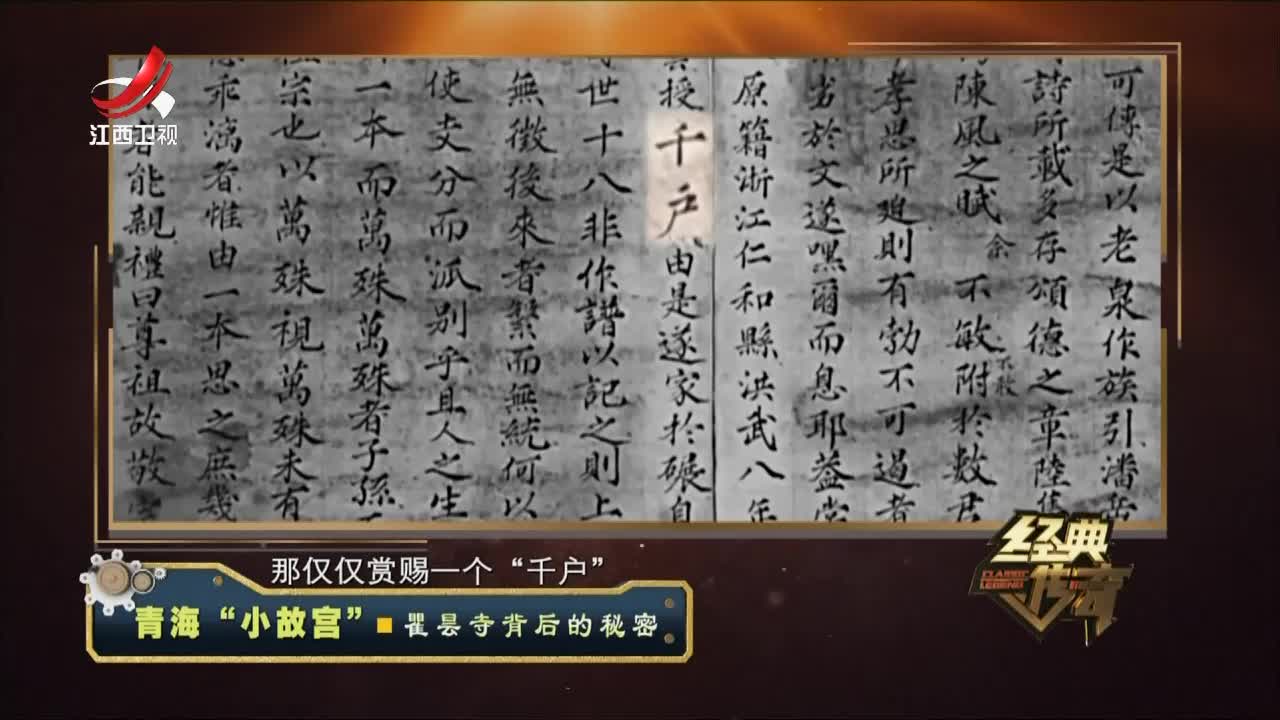 江西卫视
可傳是以老泉作族引潘岳
詩所載多存頌德之章陸
陳風之賦 余不敏附於數君
不敢
孝思所廹則有勃不可過者
於文遂嘿爾而息耶葢
原籍浙江仁和縣洪武八年
授千户由是遂家於碾自
世十八非作譜以記之則上
無徵後來者繫而無統何以
使支分而派别乎且人之生
一本而萬殊萬殊者子孫
宗也以萬殊視萬殊未有
乖漓者惟由一本思之庶幾
者能親禮曰尊祖故敬
经典传奇
CLASSIC LEGEND
那仅仅赏赐一个“千户”
青海“小故宫”瞿昙寺背后的秘密